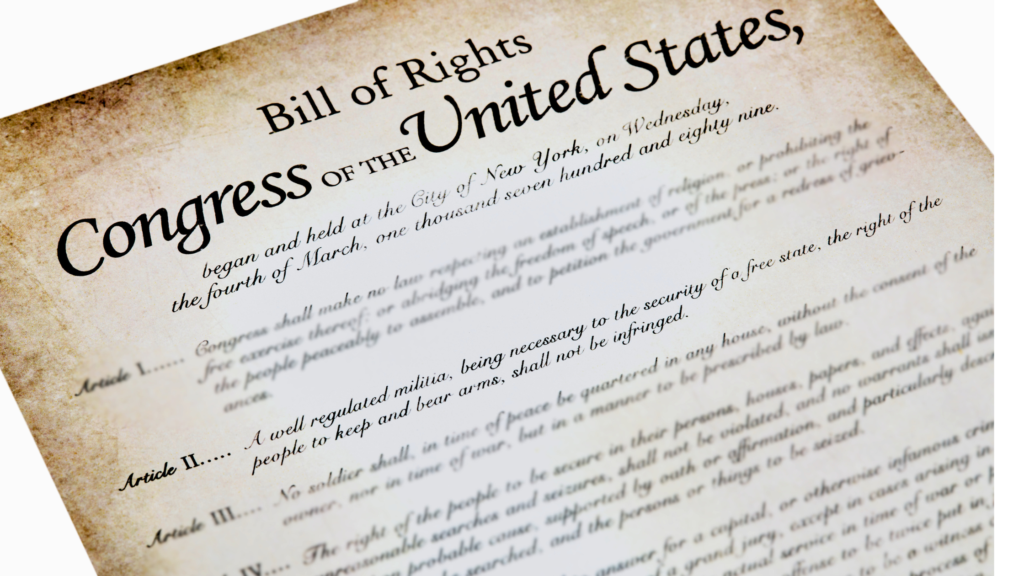 Bill of Rights
Congress OF THE United States,
began and held at the City of New York, on Wednesday,
the fourth of March, one thousand seven hundred and eighty nine.
Article I...... Congress shall make no law respecting an establishment of religion, or prohibiting the
free exercise thereof; or abridging the freedom of speech, or of the press; or the right of
the people peaceably to assemble, and to petition the government for a redress of griev-
ances.
Article II..... A well regulated militia, being necessary to the security of a free state, the right of the
people to keep and bear arms, shall not be infringed.
Article III.... No soldier shall, in time of peace be quartered in any house, without the consent of the
owner, nor in time of war, but in a manner to be prescribed by law.
IV.... The right of the people to be secure in their persons, houses, papers, and effects,
searches and seizures, shall not be violated, and no warrants shall
probable cause, supported by oath or affirmation, and particularly
searched, and the persons or things to be seized.
answer for a capital, or otherwise infamous
a grand jury, except in cases arising in
service in time of war or
offense to be twice put in
to be a witness
process of